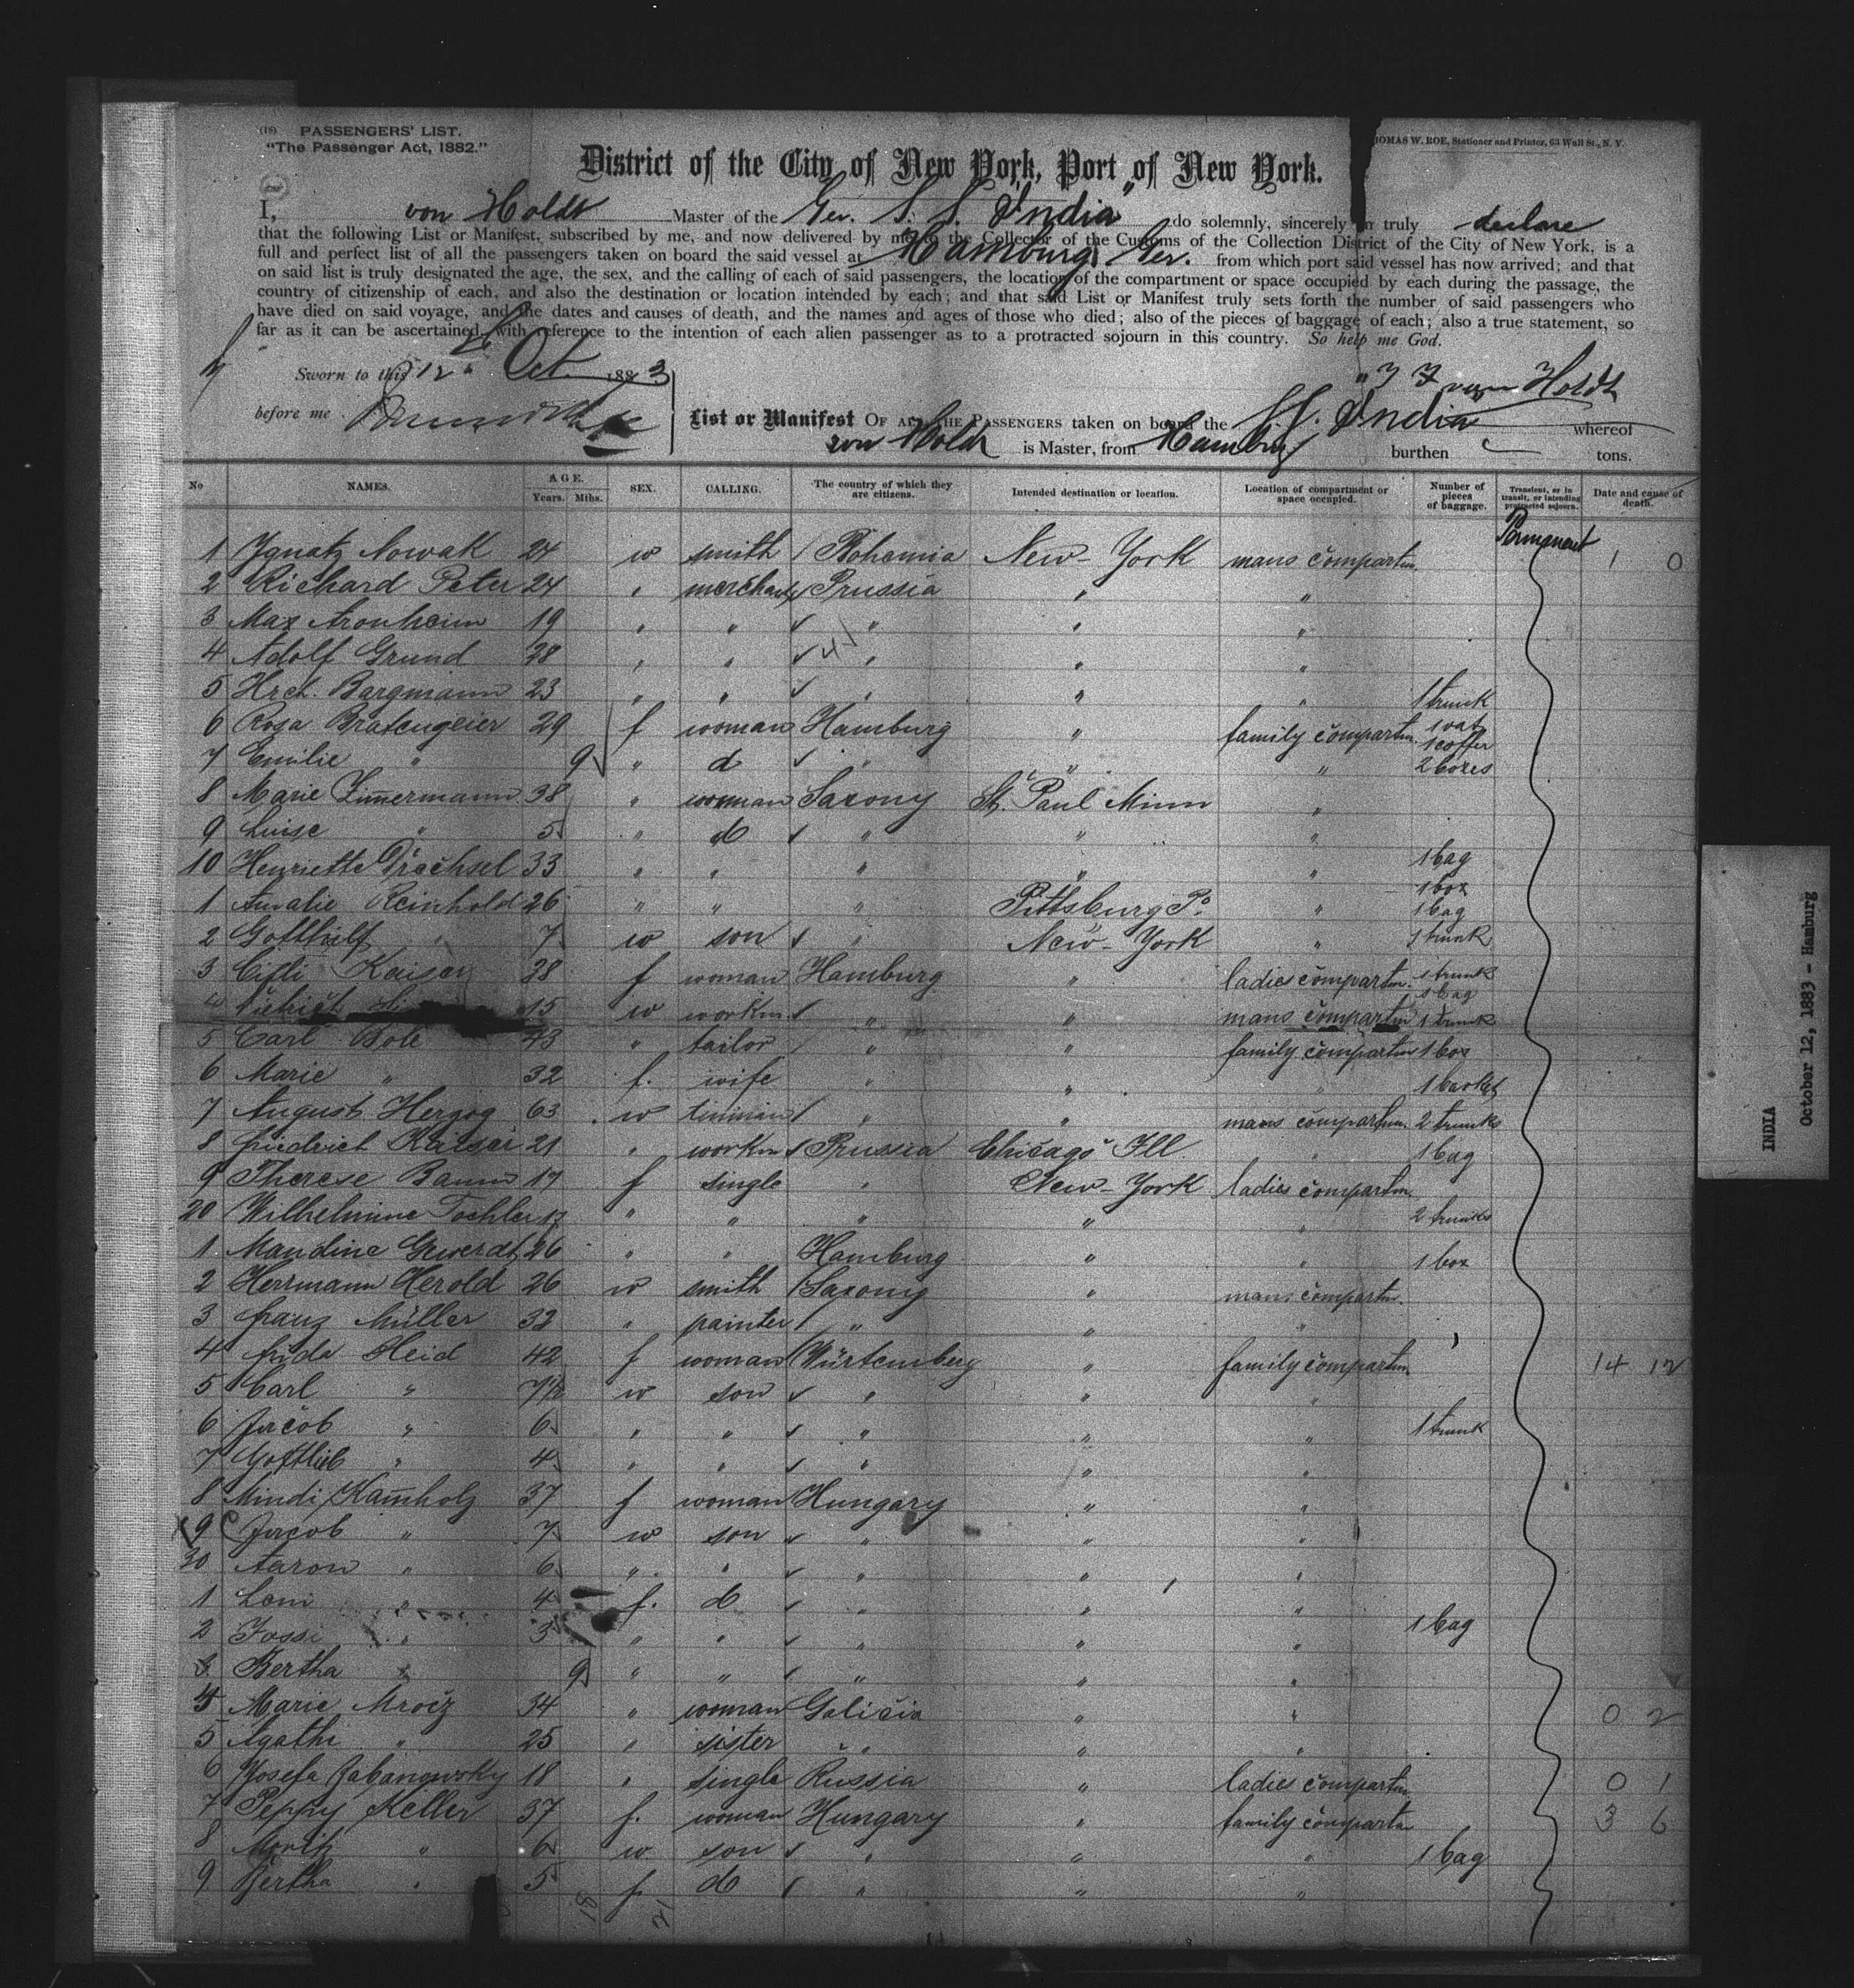 (18) PASSENGERS' LIST.
"The Passenger Act, 1882."
THOMAS W. ROE, Stationer and Printer, 63 Wall St., N. Y.
District of the City of New York, Port of New York.
I, von Holdt Master of the Ger. S. S. "India" do solemnly, sincerely truly declare
that the following List or Manifest, subscribed by me, and now delivered by me to the Collector of the Customs of the Collection District of the City of New York, is a
full and perfect list of all the passengers taken on board the said vessel at Hamburg, Ger. from which port said vessel has now arrived; and that
on said list is truly designated the age, the sex, and the calling of each of said passengers, the location of the compartment or space occupied by each during the passage, the
country of citizenship of each, and also the destination or location intended by each; and that said List or Manifest truly sets forth the number of said passengers who
have died on said voyage, and the dates and causes of death, and the names and ages of those who died; also of the pieces of baggage of each; also a true statement, so
far as it can be ascertained, with reference to the intention of each alien passenger as to a protracted sojourn in this country. So help me God.
Sworn to this 12 " Oct 1883
von Holdt
before me
List or Manifest OF ALL THE PASSENGERS taken on board the SS. India whereof
von Holdt is Master, from Hamburg burthen tons.
No NAMES. AGE. Years. Mths. SEX. CALLING. The country of which they are citizens. Intended destination or location. Location of compartment or space occupied. Number of pieces of baggage. Transient, or in transit, or intending protracted sojourn. Date and cause of death.
Permanent
1 Ignatz Nowak 24 w smith Bohemia New-York mans compartm. 1 0
2 Richard Peter 24 " merchant Prussia " "
3 Max Aronheim 19 " " " " "
4 Adolf Grund 28 " " " " "
5 Hrch. Bargmann 23 " " " " 1 trunk
6 Rosa Bratengeier 29 f woman Hamburg " family compartm.
7 Emilie " 9 " d " " " 1 coffer 2 boxes
8 Marie Zimmermann 38 " woman Saxony St. Paul Minn "
9 Luise " 5 " d " " "
10 Henriette Drächsel 33 " " " " " 1 bag
1 box
1 Amalie Reinhold 26 " " " Pittsburg Pa. " 1 bag
2 Gotthilf " 7 w son " New-York " 1 trunk
3 Kaiser 28 f woman Hamburg " ladies compartm. 1 trunk
1 bag
4 Dietrich 15 w workm. " " mans compartm 1 trunk
5 Carl Bole 43 " tailor " " family compartm 1 box
6 Marie " 32 f. wife " " " 1 basket
7 August Herzog 63 w tinman " " mans compartm. 2 trunks
8 Friedrich Kaiser 21 " workm Prussia Chicago Ill " 1 bag
9 Therese Baum 17 f single " New-York ladies compartm.
20 Wilhelmine Tochler 17 " " " " " 2 trunks
1 Mandine Gewerdt 26 " " Hamburg " " 1 box
2 Herrmann Herold 26 w smith Saxony " mans compartm.
3 Franz Müller 32 " painter " " "
4 Frida Heid 42 f woman Würtemberg " family compartm. 14 12
5 Carl " 7½ w son " " "
6 Jacob " 6 " " " " " 1 trunk
7 Gottlieb " 4 " " " " "
8 Mindi Kamholz 37 f woman Hungary " "
9 Jacob " 7 w son " " "
30 Aaron " 6 " " " " "
1 Leni " 4 f. d " " "
2 Fossi " 3 " " " " " 1 bag
3 Bertha " 9 " " " " "
4 Marie Mrocz 34 " woman Galicia " " 0 2
5 Agathe " 25 " sister " " "
6 Josefa Zabanowsky 18 " single Russia " ladies compartm 0 1
7 Peppy Keller 37 f. woman Hungary " family compartm 3 6
8 Moritz " 6 w son " " " 1 bag
9 Bertha " 5 f d " " "
INDIA
October 12, 1883 - Hamburg